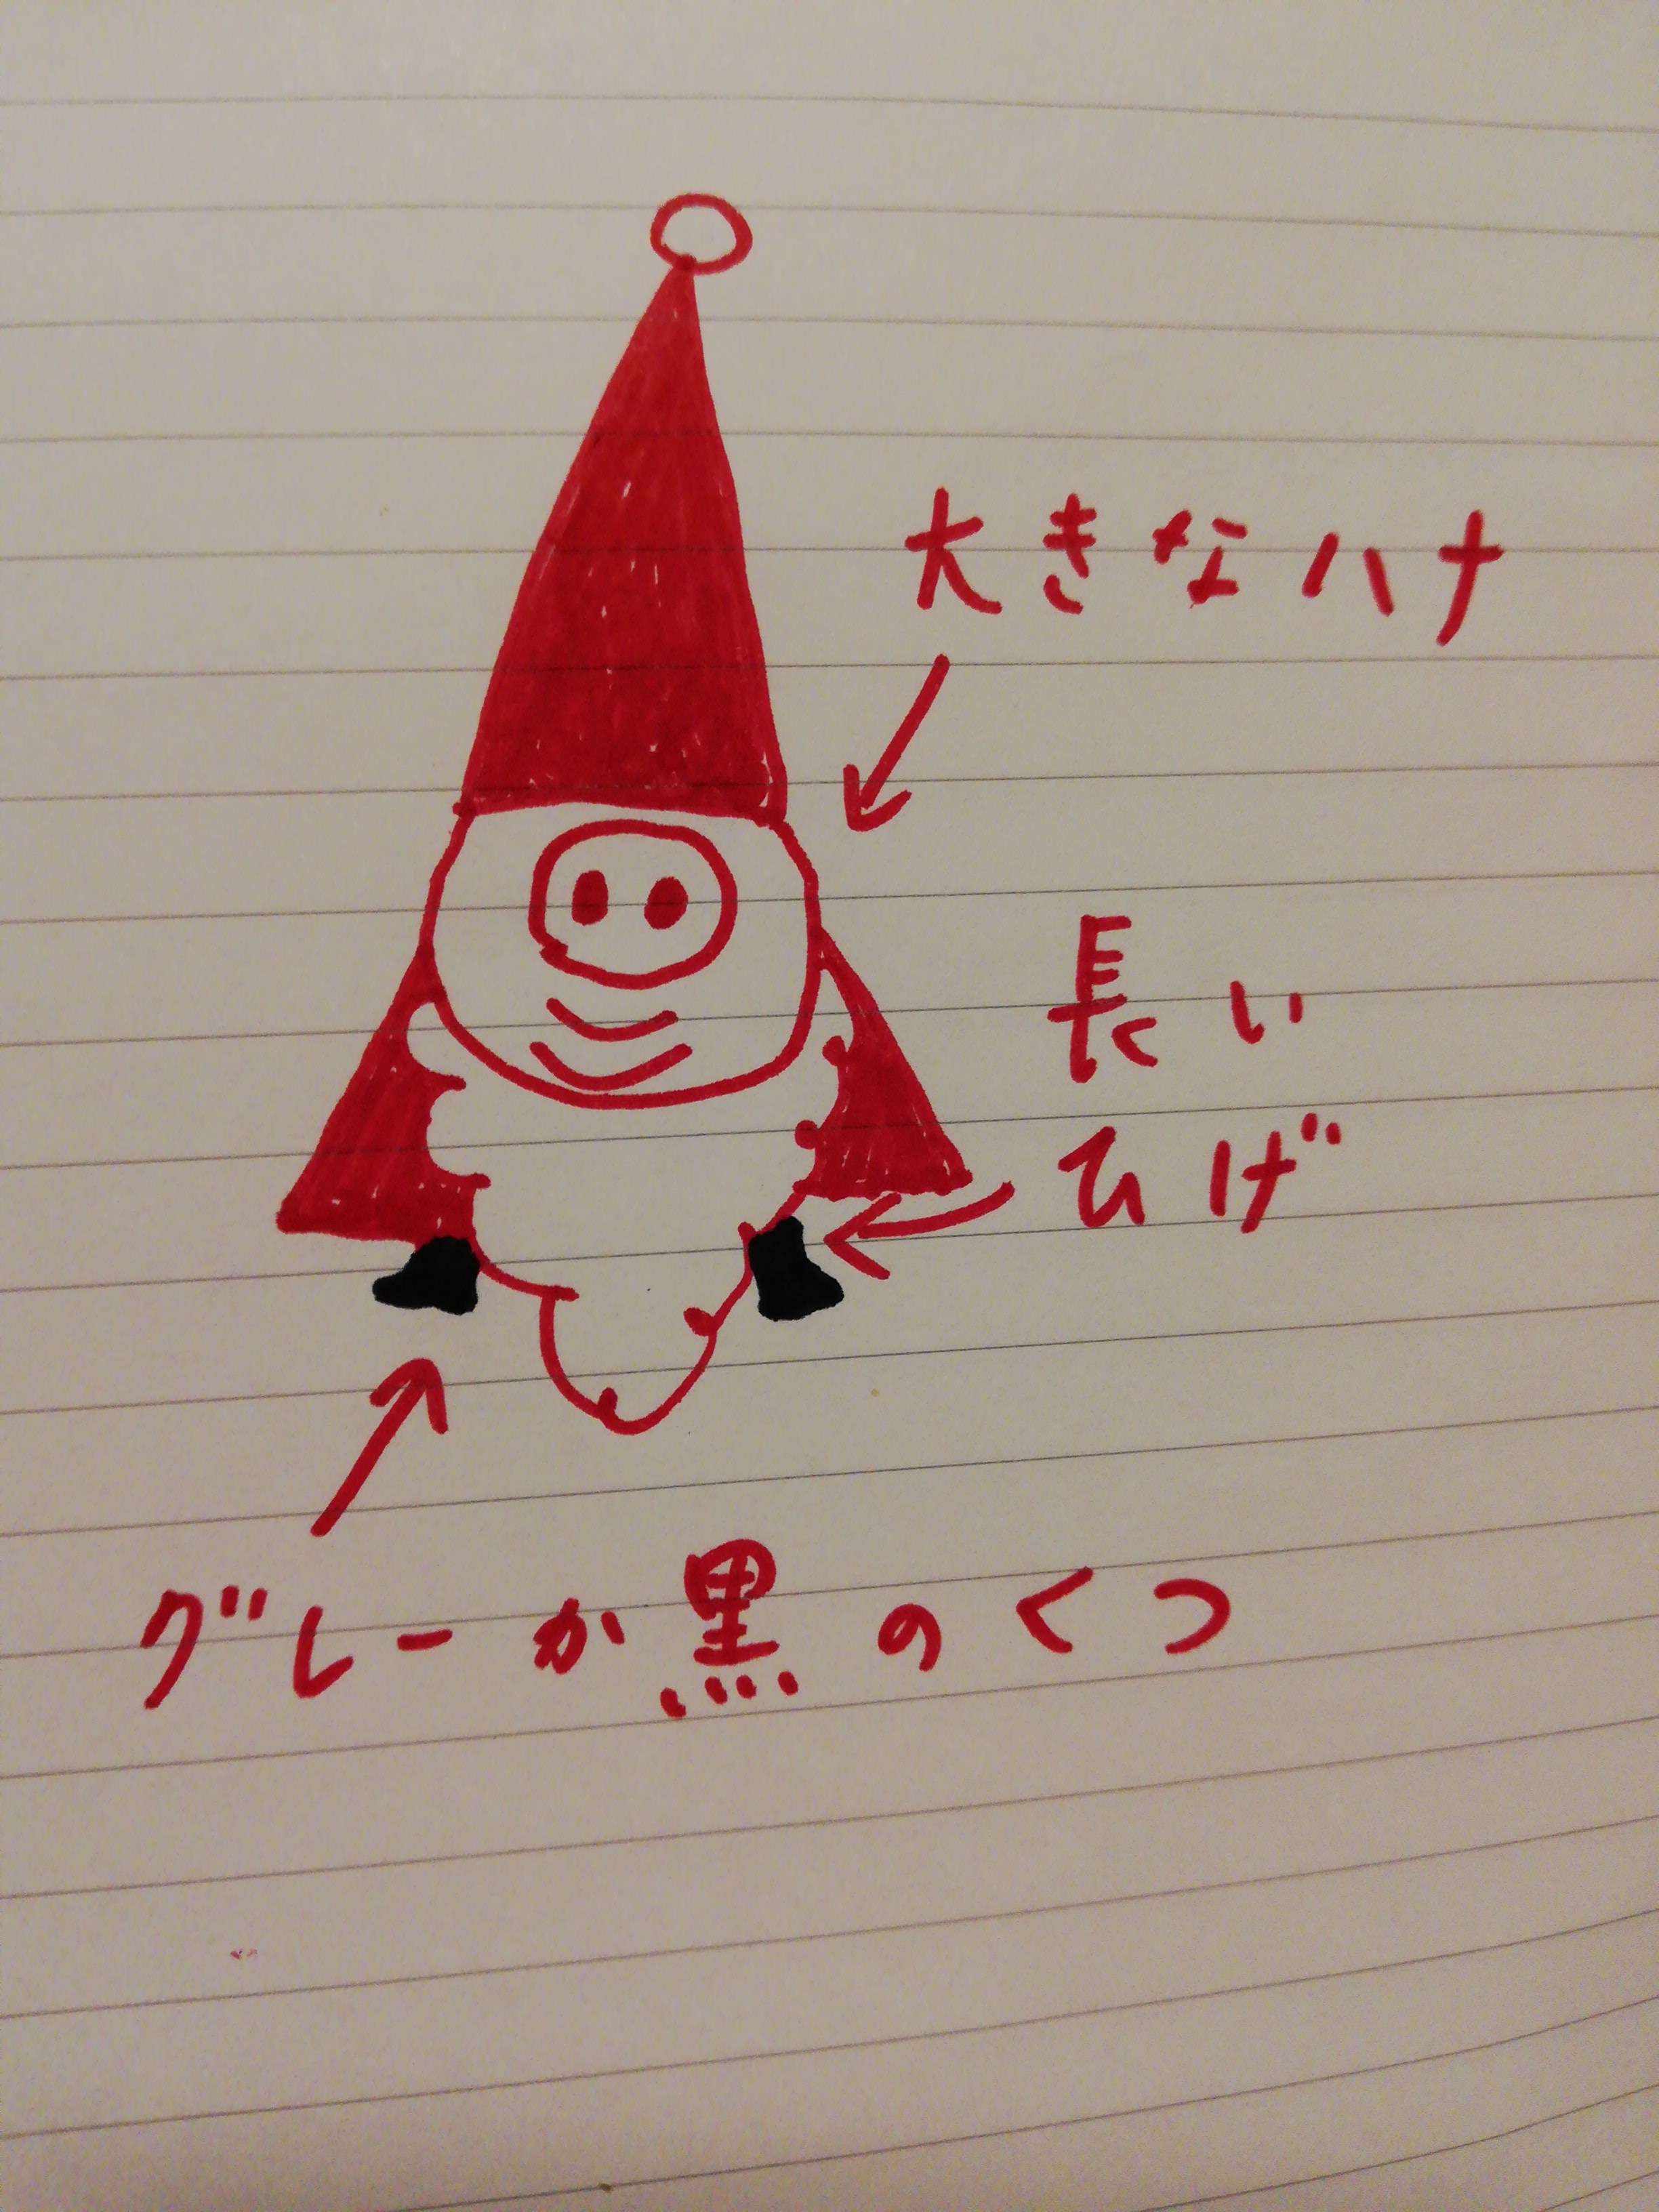 大きなハナ
長い
ひげ
グレーか黒のくつ